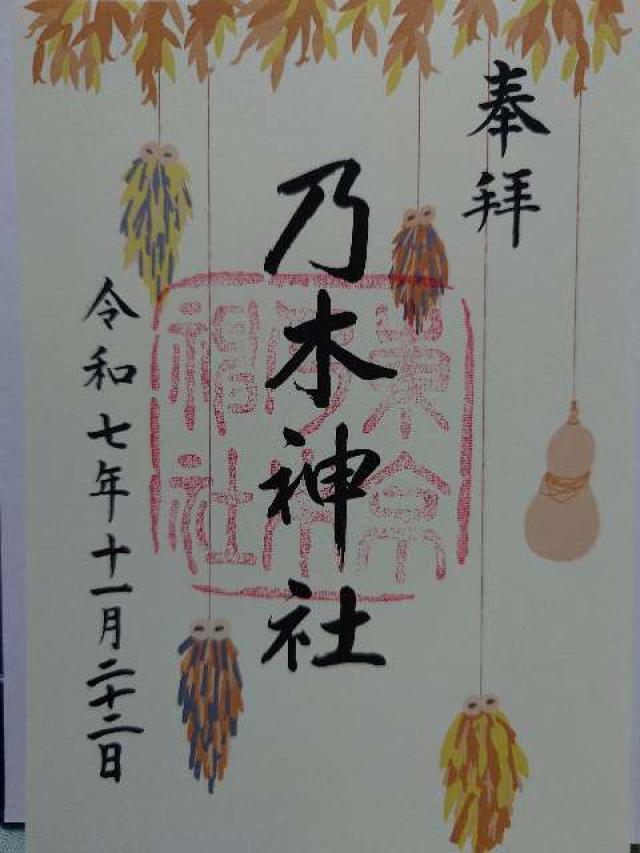 奉拝
乃木神社
令和七年十一月二十二日
東京乃木神社